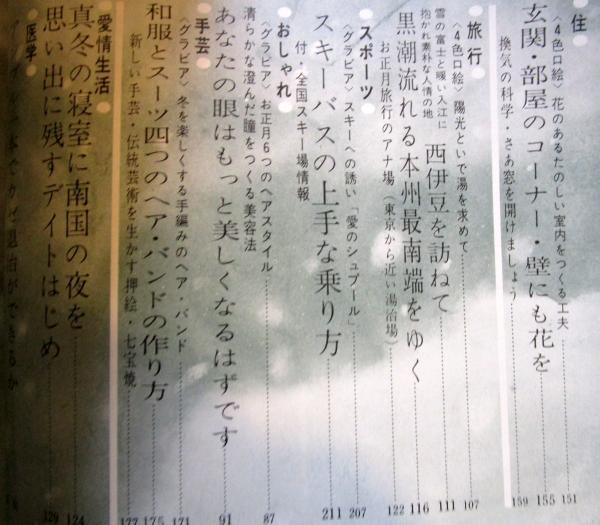 住
〈4色口絵〉花のあるたのしい室内をつくる工夫 151
玄関・部屋のコーナー・壁にも花を 155
換気の科学・さあ窓を開けましょう 159
旅行
〈4色口絵〉陽光といで湯を求めて 107
雪の富士と暖い入江に
抱かれ素朴な人情の地
西伊豆を訪ねて 111
黒潮流れる本州最南端をゆく 116
お正月旅行のアナ場(東京から近い湯治場) 122
スポーツ
〈グラビア〉スキーへの誘い「愛のシュプール」 207
スキーバスの上手な乗り方 211
付・全国スキー場情報
おしゃれ
〈グラビア〉お正月6つのヘアスタイル 87
清らかな澄んだ瞳をつくる美容法
あなたの眼はもっと美しくなるはずです 91
手芸
〈グラビア〉冬を楽しくする手編みのヘア・バンド 171
和服とスーツ四つのヘア・バンドの作り方 175
新しい手芸・伝統芸術を生かす押絵・七宝焼 177
愛情生活
真冬の寝室に南国の夜を 124
思い出に残すデイトはじめ 129
医学